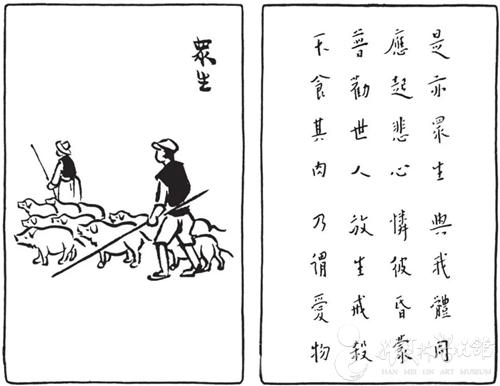 眾生
是亦眾生 與我體同
應起悲心 憐彼昏蒙
普勸世人 放生戒殺
不食其肉 乃謂愛物
HAN MEI LIN ART MUSEUM